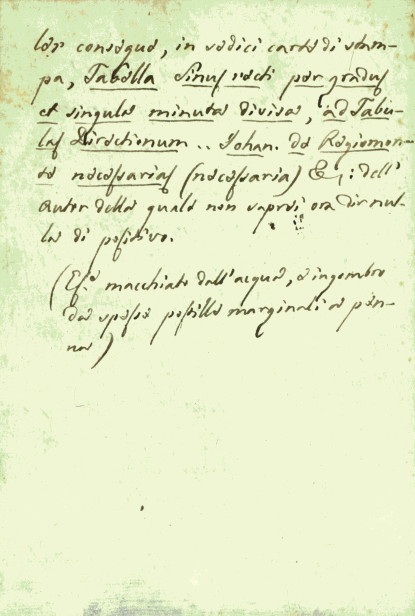 lor consegue, in sedici carte di stam-
pa, Tabella Sinus recti per gradus
et singula minuta divisa, ad Tabu-
las Directionum .. Johan. de Regiomon-
te necessarias (necessaria) &c: dell'
autor della quale non saprei ora dir nul-
la di positivo.
(Es.e macchiato dall'acqua, e ingombro
da spesse postille marginali a pen-
na)